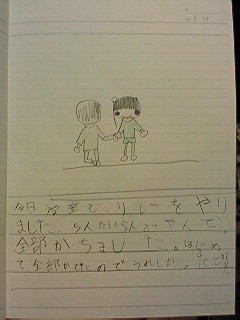 今日 で、リレーをやり
ました。5人たい5人でやんで
全部かちました。はじめ
て全部かてたのでうれしか